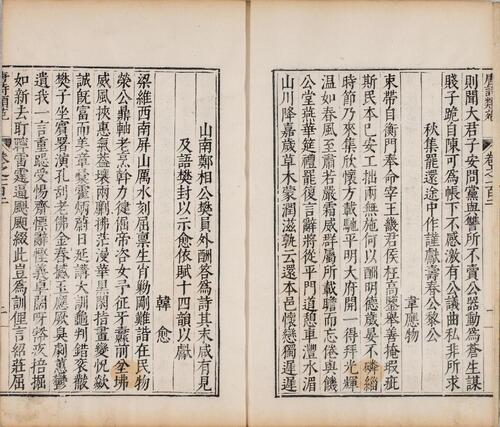 則聞大君子安問黨與讐所不賣公器動為蒼生謀
賤子跪自陳可為帳下不感激有公議曲私非所求
秋集罷還途中作謹獻壽春公黎公
韋應物
束帶自衡門奉命宰王畿君侯枉高鑒舉善掩瑕疵
斯民本已安工拙兩無施何以酬明德歲晏不磷緇
時節乃來集欣懷方載馳平明大府開一得拜光輝
温如春風至肅若嚴霜威群屬所載瞻而忘倦與饑
公堂燕華筵禮罷復言辭將從平門道憩車灃水湄
山川降嘉歲草木蒙潤滋孰云還本邑懷戀獨遲遲
山南鄭相公樊員外酬答為詩其末咸有見
及語樊封以示愈依賦十四韻以獻
韓愈
梁維西南屏山厲水刻屈稟生肖勦剛難諧在民物
滎公鼎軸老烹斡力健倔帝咨女予往牙纛前坌坲
威風挾惠氣蓋壤兩劘拂茫漫華黑間指畫變怳欻
誠既富而美章彚霍炳蔚日延講大訓龜判錯衮黻
樊子坐賓署演孔刮老佛金舂撼玉應厥臭劇蕙鬱
遺我一言重跽受惕齋慄辭慳義卓闊呀豁疚掊掘
如新去耵聹雷霆逼颶䫻綴此豈為訓俚言紹莊屈